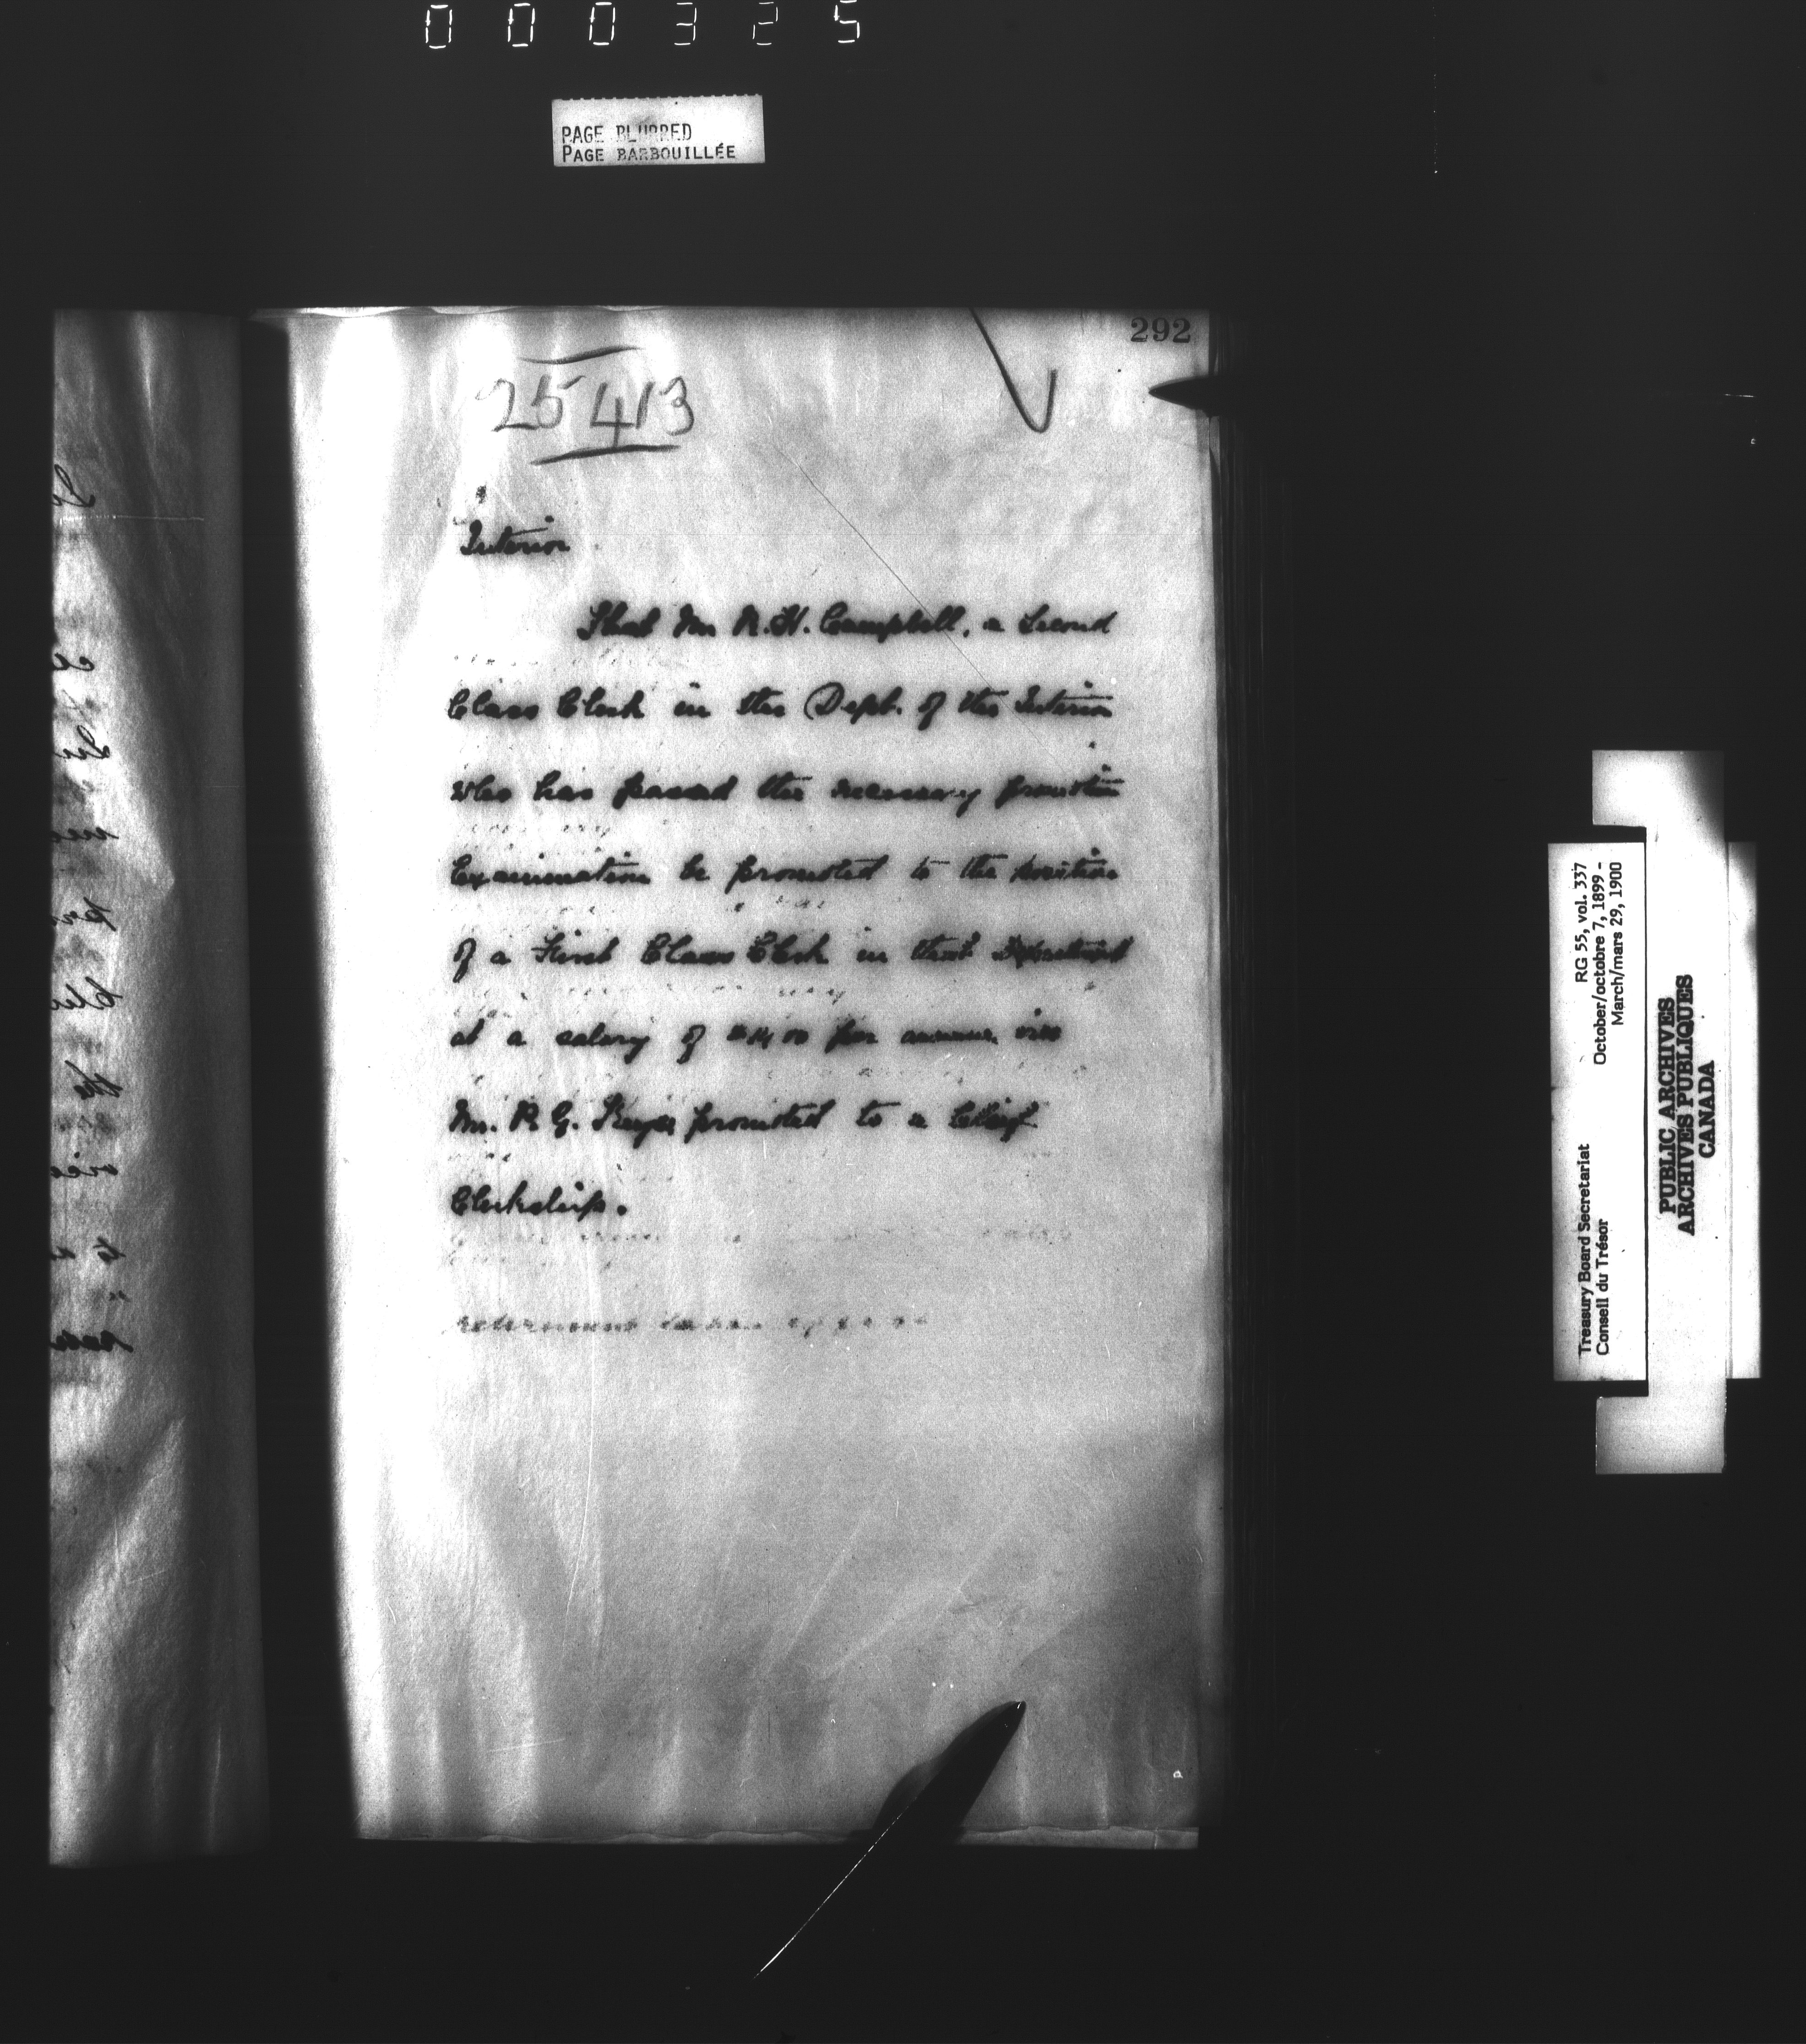 000325
PAGE BLURRED
PAGE BARBOUILLÉE
292
25413
Interior
That Mr. R. H. Campbell, a Second
Class Clerk in the Dept. of the Interior
who has passed the necessary promotion
Examination be promoted to the position
of a First Class Clerk in that Department
at a salary of $1400 per annum vice
Mr. P. G. Keyes promoted to a Chief
Clerkship.
RG 55, vol. 337
October/octobre 7, 1899 -
March/mars 29, 1900
Treasury Board Secretariat
Conseil du Trésor
PUBLIC ARCHIVES
ARCHIVES PUBLIQUES
CANADA